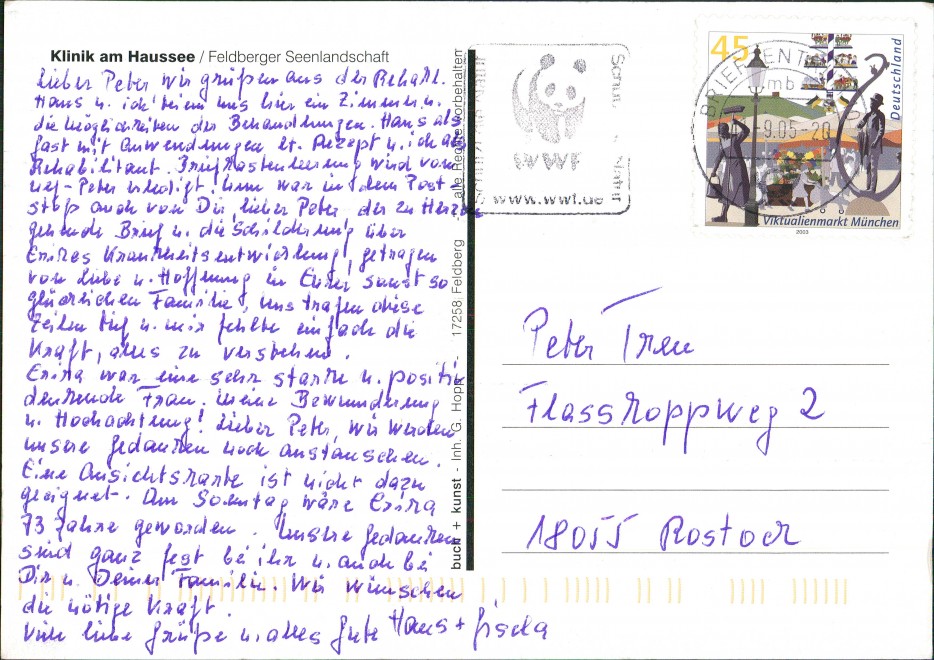 Klinik am Haussee / Feldberger Seenlandschaft
Lieber Peter wir grüßen aus der Rehakl.
Haus u. ich haben uns hier ein Zimmer u.
die Möglichkeiten der Behandlungen. Hans als
fast mit Anwendungen lt. Rezept u. ich als
Rehabilitant. Briefkastenleerung wird vom
Nef-Peter erledigt. Nun war in dem Post
stop auch von Dir, lieber Peter, der zu Herzen
gehende Brief u. die Schilderung über
Erikas Krankheitsentwicklung, getragen
von Liebe u. Hoffnung in Eurer sonst so
glücklichen Familie, uns trafen diese
Zeilen tief u. mir fehlte einfach die
Kraft, alles zu verstehen.
Erika war eine sehr starke u. positiv
denkende Frau. Meine Bewunderung
u. Hochachtung! Lieber Peter, wir werden
unsere Gedanken noch austauschen.
Eine Ansichtskarte ist nicht dazu
geeignet. Am Sonntag wäre Erika
73 Jahre geworden. Unsere Gedanken
sind ganz fest bei ihr u. auch bei
Dir u. Deiner Familie. Wir wünschen
die nötige Kraft.
Viele liebe Grüße u. alles Gute Hans + Gisela
buch + kunst - Inh. G. Hopp - 17258 Feldberg
alle Rechte vorbehalten
WWF
www.wwf.de
BRIEFZENTRUM
9.05-20
45
Deutschland
Viktualienmarkt München
2003
Peter Treu
Flasskoppweg 2
18055 Rostock